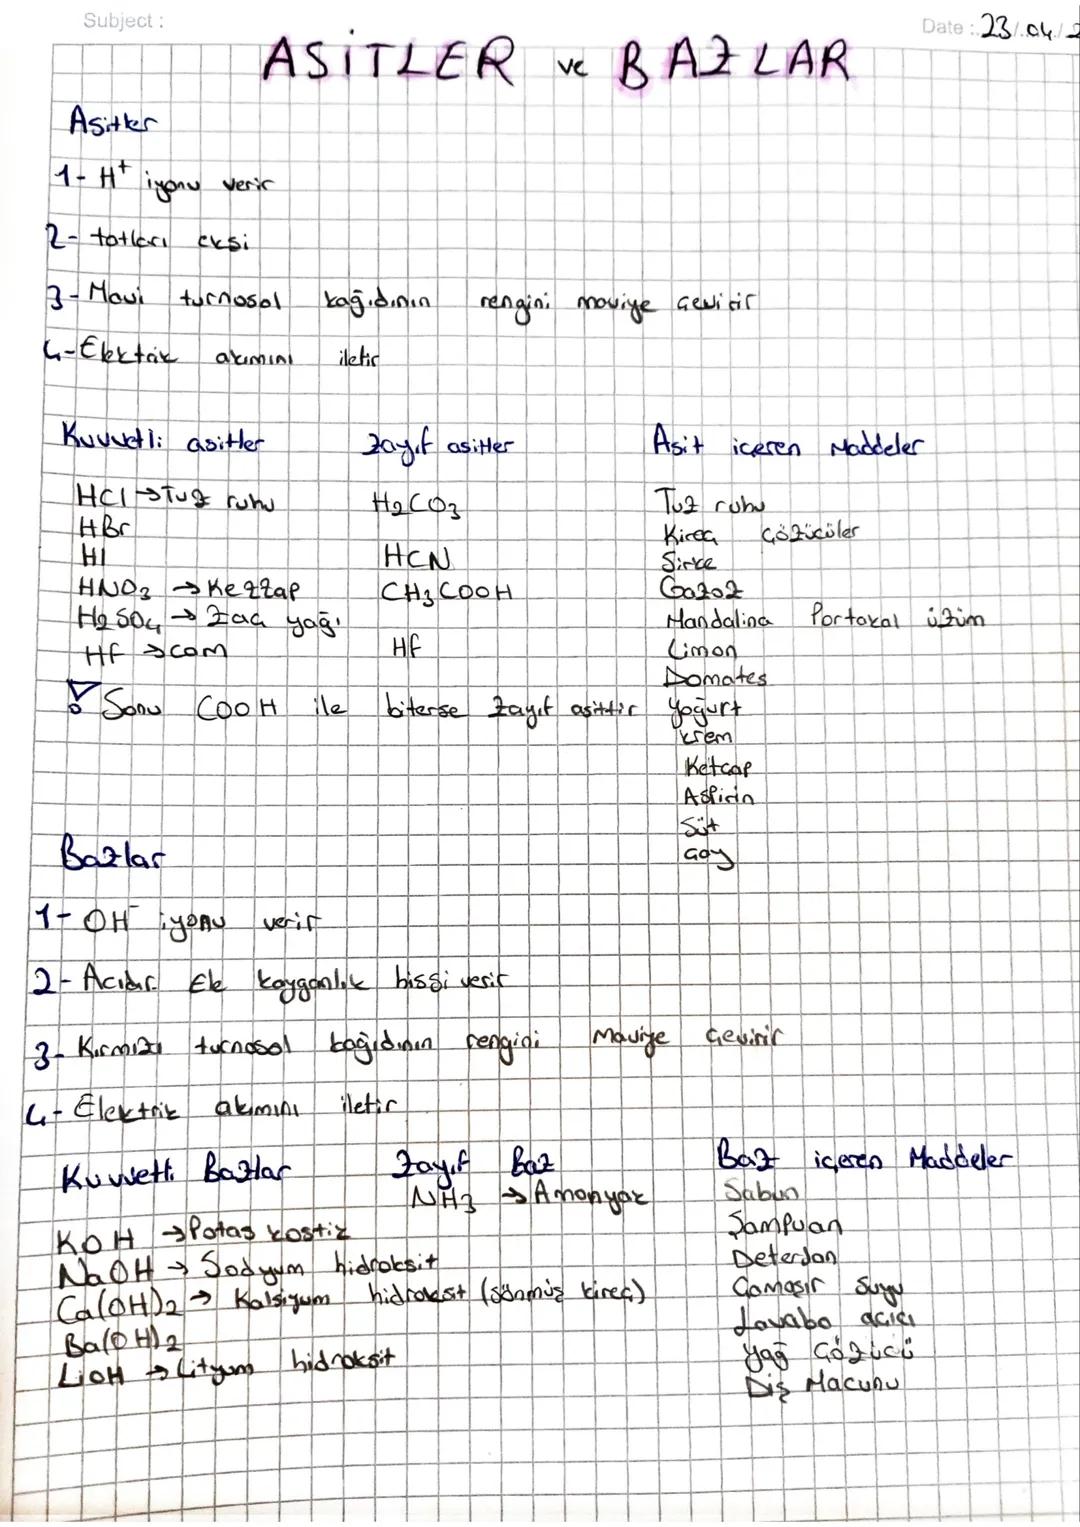 Subject :
Date : 23/.04./2
ASİTLER ve BAZLAR
Asitler
1- H⁺ iyonu verir
2- tatları ekşi
3- Mavi turnosol kağıdının rengini maviye çevirir
4- Elektrik akımını iletir
Kuvvetli asitler
HCl → Tuz ruhu
HBr
HI
HNO₃ → Kezzap
H₂SO₄ → Zaç yağı
HF → cam
Zayıf asitler
H₂CO₃
HCN
CH₃COOH
HF
! Sonu COOH ile biterse zayıf asittir
Asit içeren Maddeler
Tuz ruhu
Kireç çözücüler
Sirke
Gazoz
Mandalina Portakal üzüm
Limon
Domates
Yoğurt
krem
Ketçap
Aspirin
Süt
Çay
Bazlar
1- OH⁻ iyonu verir
2- Acıdır. Ele kayganlık hissi verir
3- Kırmızı turnosol kağıdının rengini Maviye çevirir
4- Elektrik akımını iletir
Kuvvetli Bazlar
KOH → Potas kostik
NaOH → Sodyum hidroksit
Ca(OH)₂ → Kalsiyum hidroksit (sönmüş kireç)
Ba(OH)₂
LiOH → Lityum hidroksit
Zayıf Baz
NH₃ → Amonyak
Baz içeren Maddeler
Sabun
Şampuan
Deterjan
Çamaşır suyu
Lavabo açıcı
Yağ Çözücü
Diş Macunu